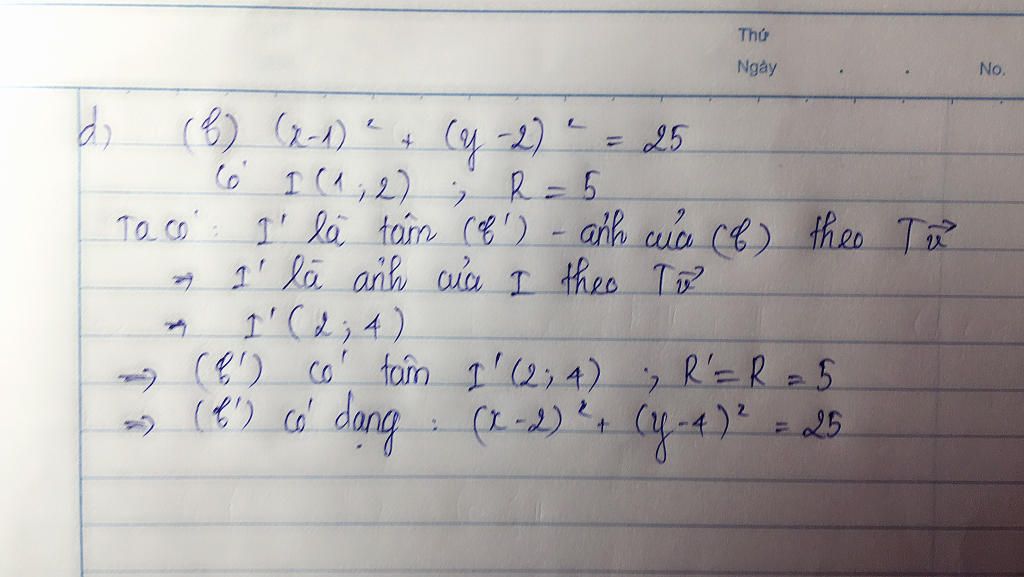 Thứ
Ngày . . No.
d) (ℓ) (x-1)² + (y-2)² = 25
Có I(1;2) ; R = 5
Ta có : I' là tâm (ℓ') - ảnh của (ℓ) theo T𝑣⃗
→ I' là ảnh của I theo T𝑣⃗
→ I'(2;4)
⇒ (ℓ') có tâm I'(2;4) ; R'=R = 5
⇒ (ℓ') có dạng : (x-2)² + (y-4)² = 25